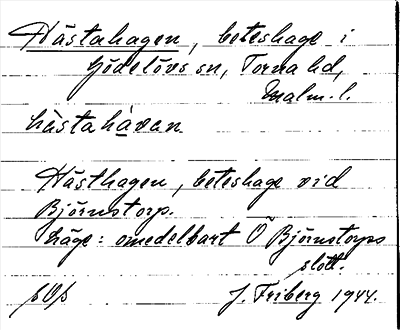 Hästahagen, beteshage i
Gödelövs sn, Torna hd,
Malm. l.
hästahàvan
Hästhagen, beteshage vid
Björnstorp.
Läge: omedelbart Ö Björnstorps
slott.
J. Friberg 1944.